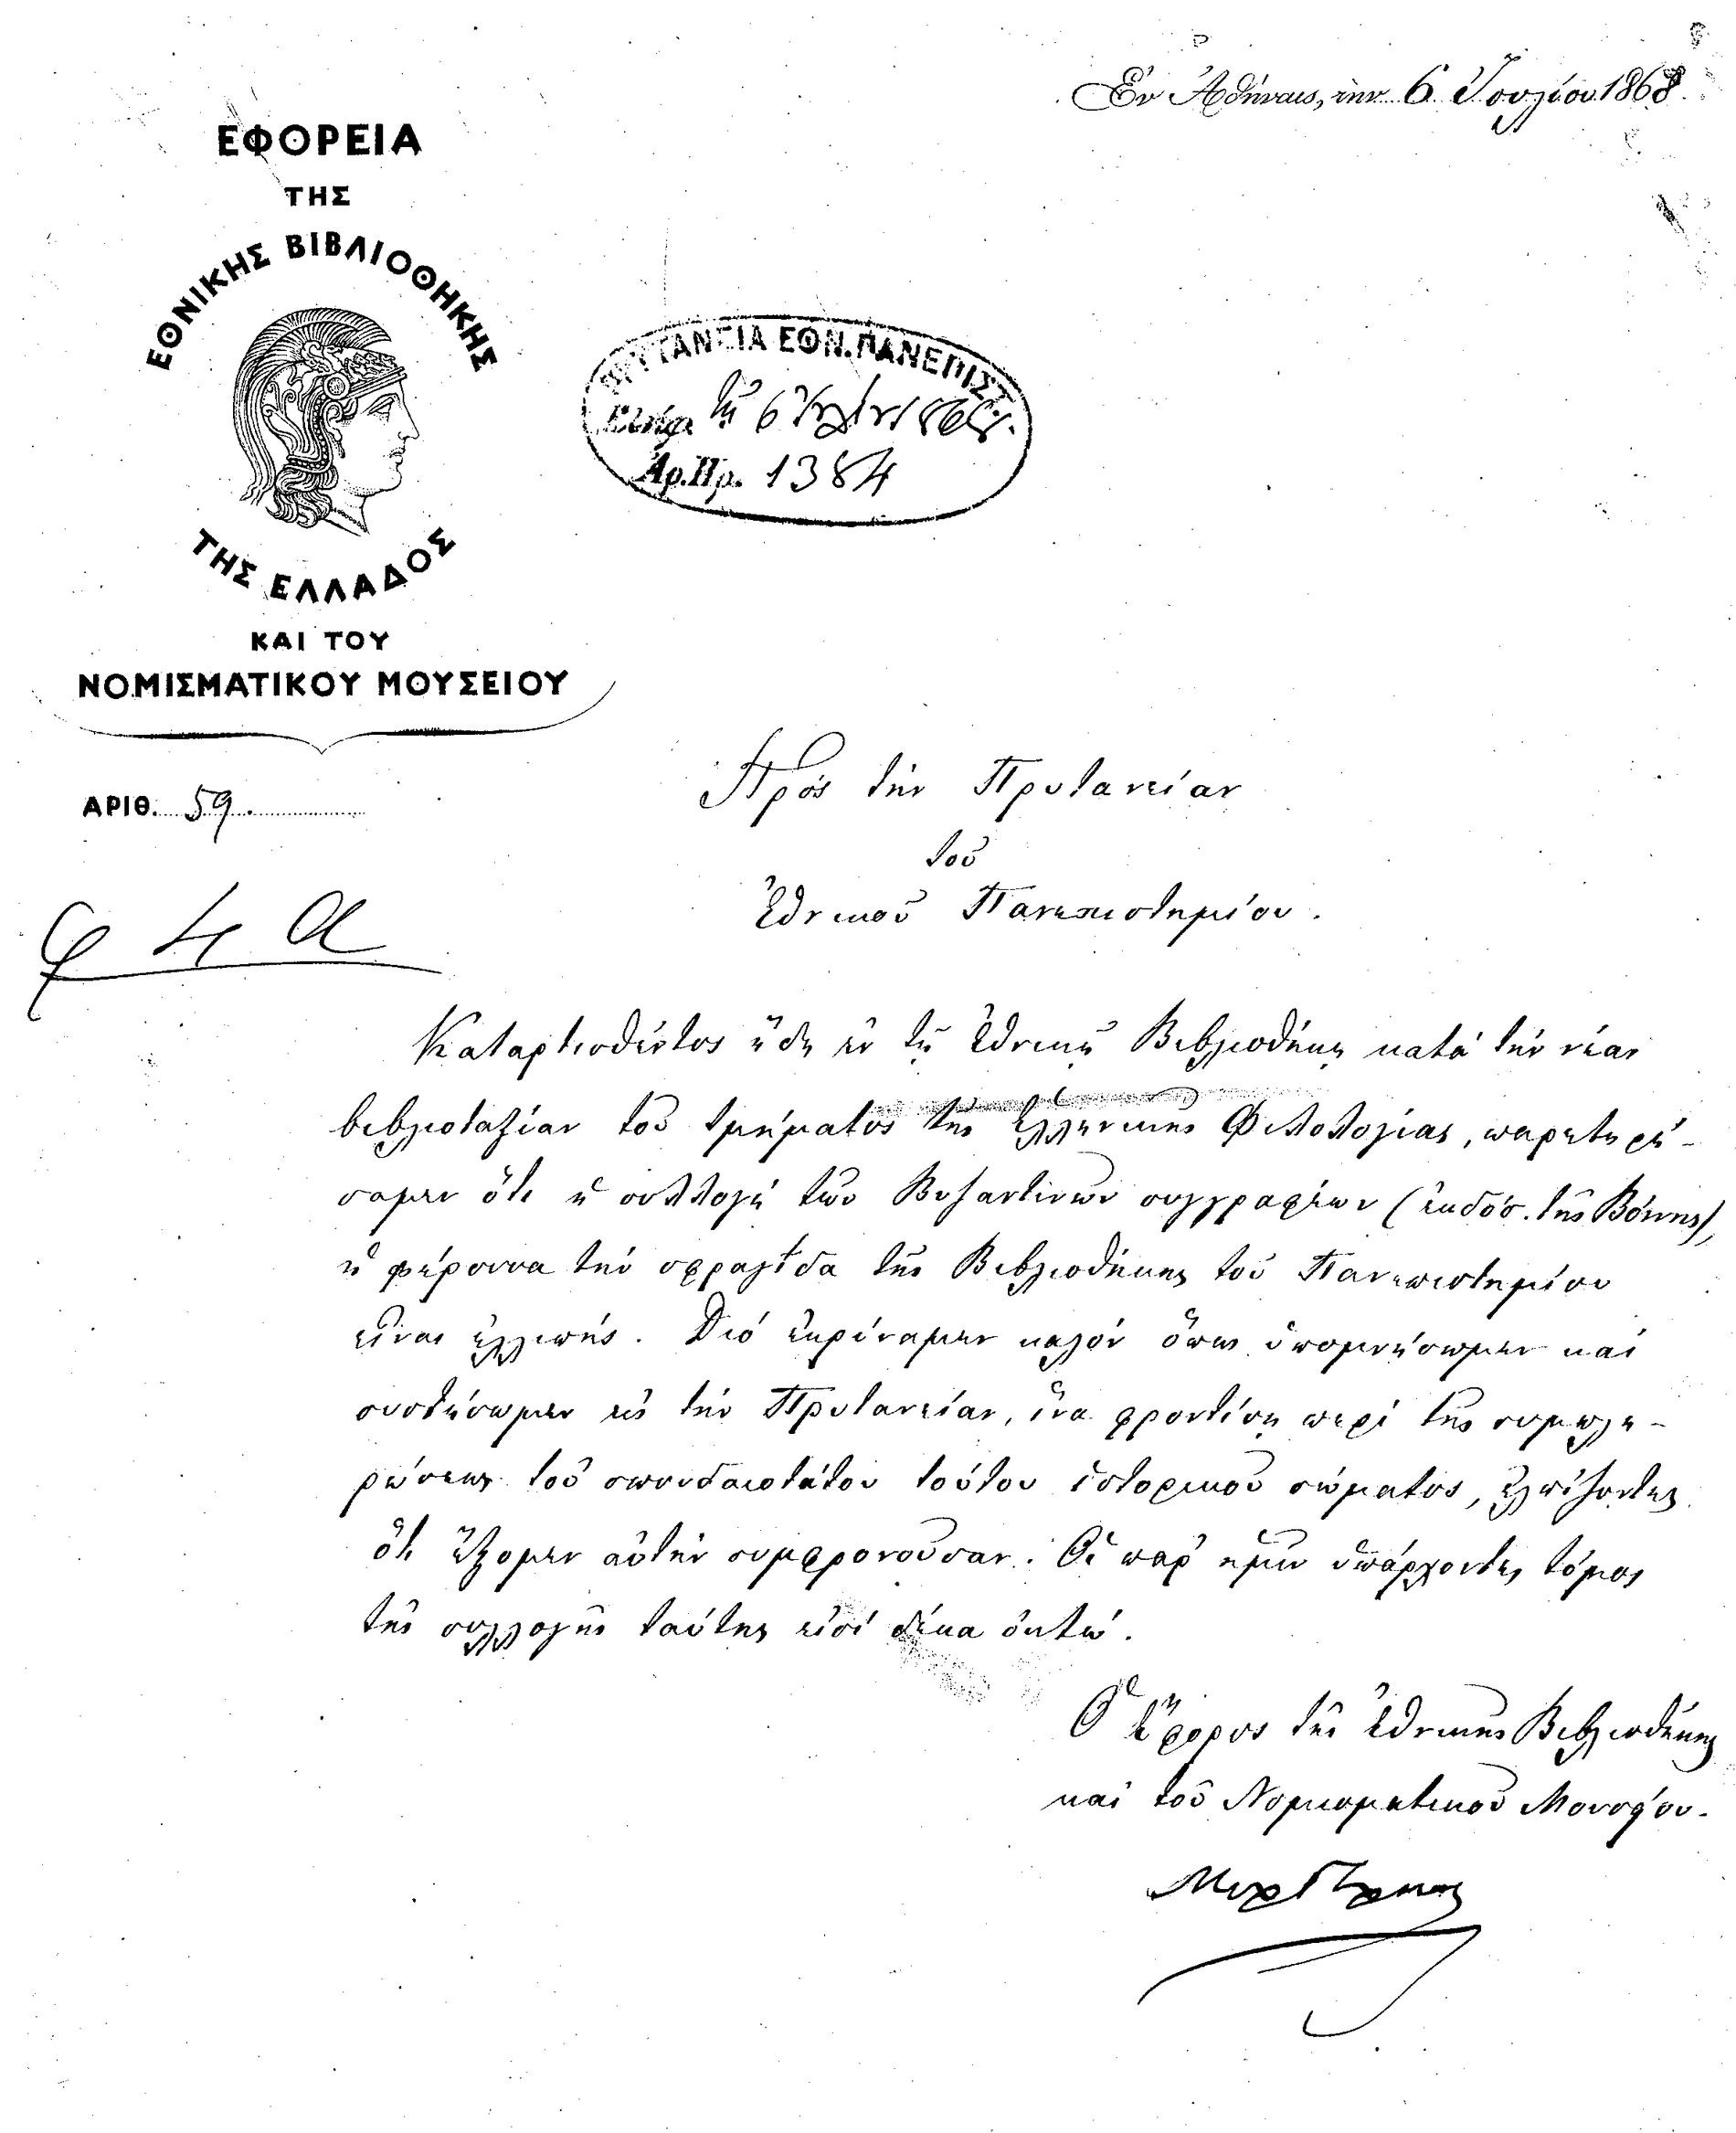 Ἐν Ἀθήναις, τὴν 6 Ἰουλίου 1868.
ΕΦΟΡΕΙΑ
ΤΗΣ
ΕΘΝΙΚΗΣ ΒΙΒΛΙΟΘΗΚΗΣ
ΤΗΣ ΕΛΛΑΔΟΣ
ΚΑΙ ΤΟΥ
ΝΟΜΙΣΜΑΤΙΚΟΥ ΜΟΥΣΕΙΟΥ
ΠΡΥΤΑΝΕΙΑ ΕΘΝ. ΠΑΝΕΠΙΣΤ.
τῇ 6 Ἰουλίου 1868.
Ἀρ. Πρ. 1384
ΑΡΙΘ. 59.
Πρὸς τὴν Πρυτανείαν
τοῦ
Ἐθνικοῦ Πανεπιστημίου.
φ 4 α
Καταρτισθέντος ἤδη ἐν τῇ Ἐθνικῇ Βιβλιοθήκῃ κατὰ τὴν νέαν
βιβλιοταξίαν τοῦ τμήματος τῆς Ἑλληνικῆς Φιλολογίας, παρετηρή-
σαμεν ὅτι ἡ συλλογὴ τῶν Βυζαντινῶν συγγραφέων (ἐκδόσ. τῆς Βόννης),
ἡ φέρουσα τὴν σφραγῖδα τῆς Βιβλιοθήκης τοῦ Πανεπιστημίου
εἶναι ἐλλιπής. Διὸ ἐκρίναμεν καλὸν ὅπως ὑπομνήσωμεν καὶ
συστήσωμεν εἰς τὴν Πρυτανείαν, ἵνα φροντίσῃ περὶ τῆς συμπλη-
ρώσεως τοῦ σπουδαιοτάτου τούτου ἱστορικοῦ σώματος, ἐλπίζοντες
ὅτι ἕξομεν αὐτὴν συμφρονοῦσαν. Οἱ παρ' ἡμῖν ὑπάρχοντες τόμοι
τῆς συλλογῆς ταύτης εἰσὶ δέκα ὀκτώ.
Ὁ Ἔφορος τῆς Ἐθνικῆς Βιβλιοθήκης
καὶ τοῦ Νομισματικοῦ Μουσείου.